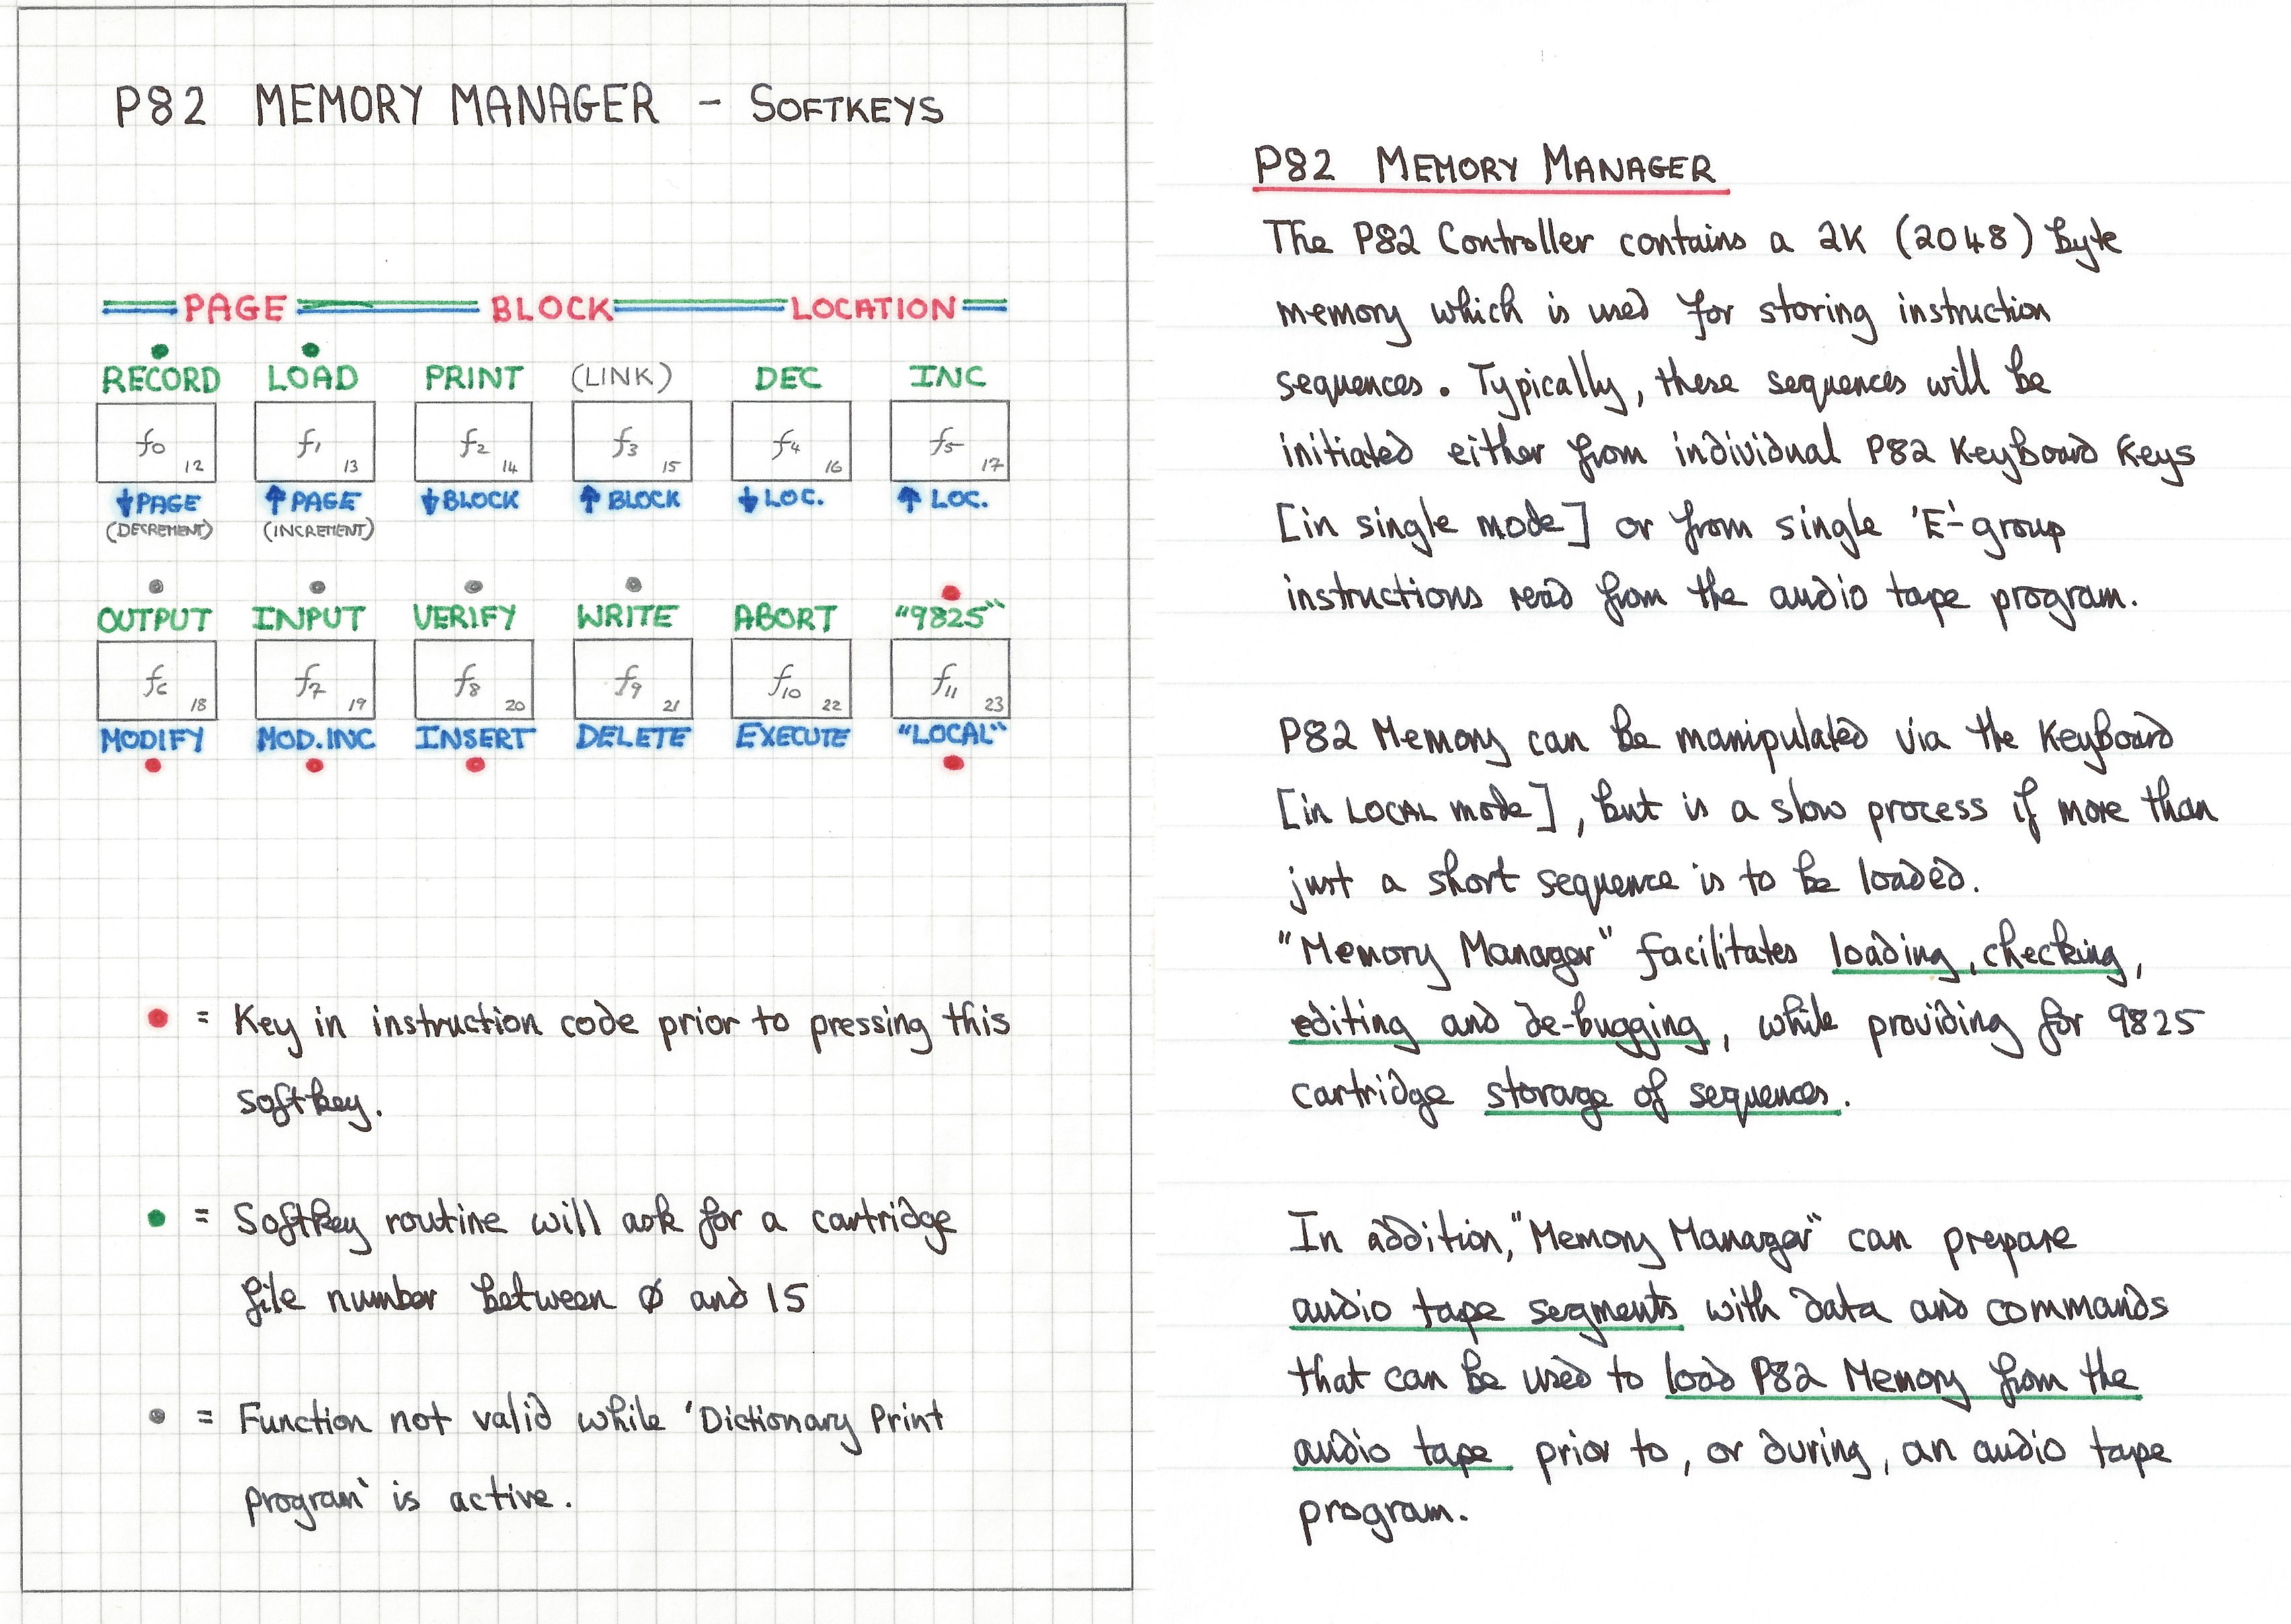 P82 MEMORY MANAGER - SOFTKEYS
PAGE BLOCK LOCATION
RECORD LOAD PRINT (LINK) DEC INC
f0 12 f1 13 f2 14 f3 15 f4 16 f5 17
↓PAGE ↑PAGE ↓BLOCK ↑BLOCK ↓LOC. ↑LOC.
(DECREMENT) (INCREMENT)
OUTPUT INPUT VERIFY WRITE ABORT "9825"
f6 18 f7 19 f8 20 f9 21 f10 22 f11 23
MODIFY MOD.INC INSERT DELETE EXECUTE "LOCAL"
= Key in instruction code prior to pressing this
softkey.
= Softkey routine will ask for a cartridge
file number between Ø and 15
= Function not valid while 'Dictionary Print
program' is active.
P82 MEMORY MANAGER
The P82 Controller contains a 2K (2048) byte
memory which is used for storing instruction
sequences. Typically, these sequences will be
initiated either from individual P82 Keyboard Keys
[in single mode] or from single 'E'-group
instructions read from the audio tape program.
P82 Memory can be manipulated via the Keyboard
[in LOCAL mode], but is a slow process if more than
just a short sequence is to be loaded.
"Memory Manager" facilitates loading, checking,
editing and de-bugging, while providing for 9825
cartridge storage of sequences.
In addition, "Memory Manager" can prepare
audio tape segments with data and commands
that can be used to load P82 Memory from the
audio tape prior to, or during, an audio tape
program.